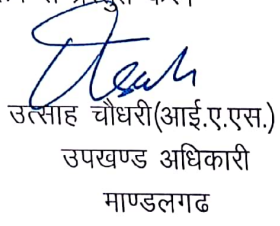 उत्साह चौधरी(आई.ए.एस.)
उपखण्ड अधिकारी
माण्डलगढ